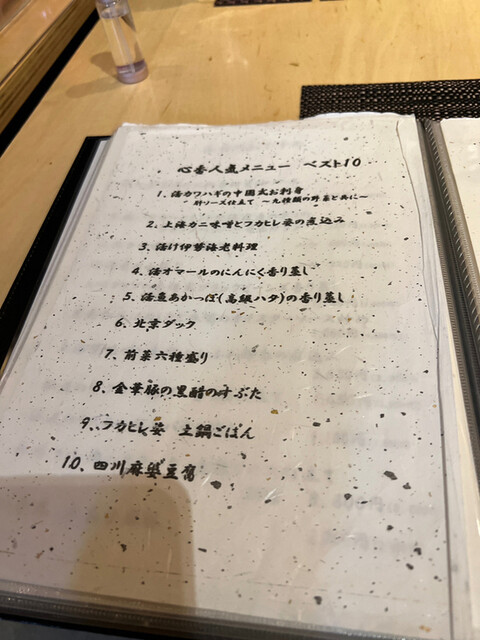 心香人気メニュー ベスト10
1. 活カワハギの中国式お刺身
肝ソース仕立て ～九種類の野菜と共に～
2. 上海カニ味噌とフカヒレ姿の煮込み
3. 活け伊勢海老料理
4. 活オマールのにんにく香り蒸し
5. 活魚あかっぽ(高級ハタ)の香り蒸し
6. 北京ダック
7. 前菜六種盛り
8. 金華豚の黒酢のすぶた
9. フカヒレ姿 土鍋ごはん
10. 四川麻婆豆腐